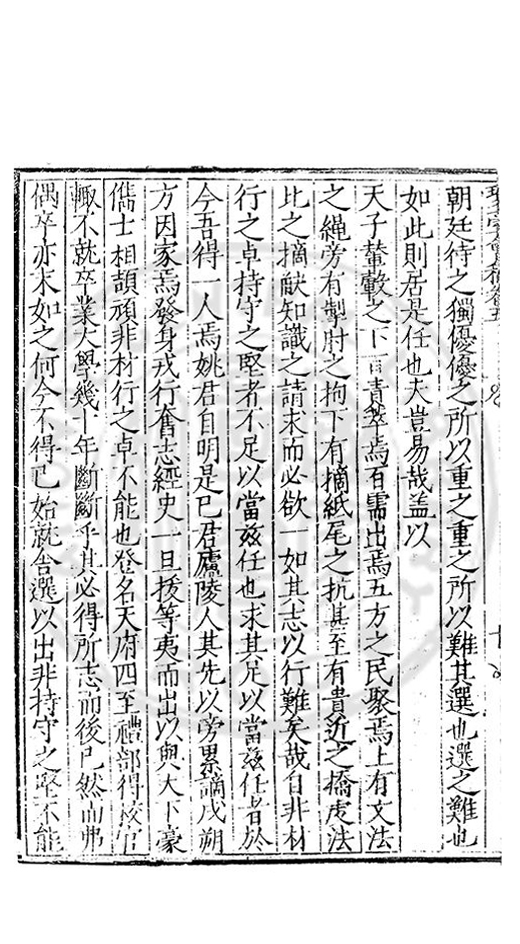 朝廷待之獨優優之所以重之重之所以難其選也選之難也
如此則居是任也夫豈易哉盖以
天子輦轂之下百責萃焉百需出焉五方之民聚焉上有文法
之繩旁有掣肘之拘下有摘紙尾之抗甚至有貴近之撟䖍法
比之摘缺知識之請求而必欲一如其志以行難矣哉自非材
行之卓持守之堅者不足以當兹任也求其足以當兹任者於
今吾得一人焉姚君自明是已君廬陵人其先以旁累謫戍朔
方因家焉發身戎行奮志經史一旦援等夷而出以與大下豪
儁士相頡頏非材行之卓不能也登名天府四至禮部得校官
輙不就卒業大學幾十年斷斷乎其必得所志而後已然而弗
偶卒亦末如之何今不得已始就舍選以出非持守之堅不能